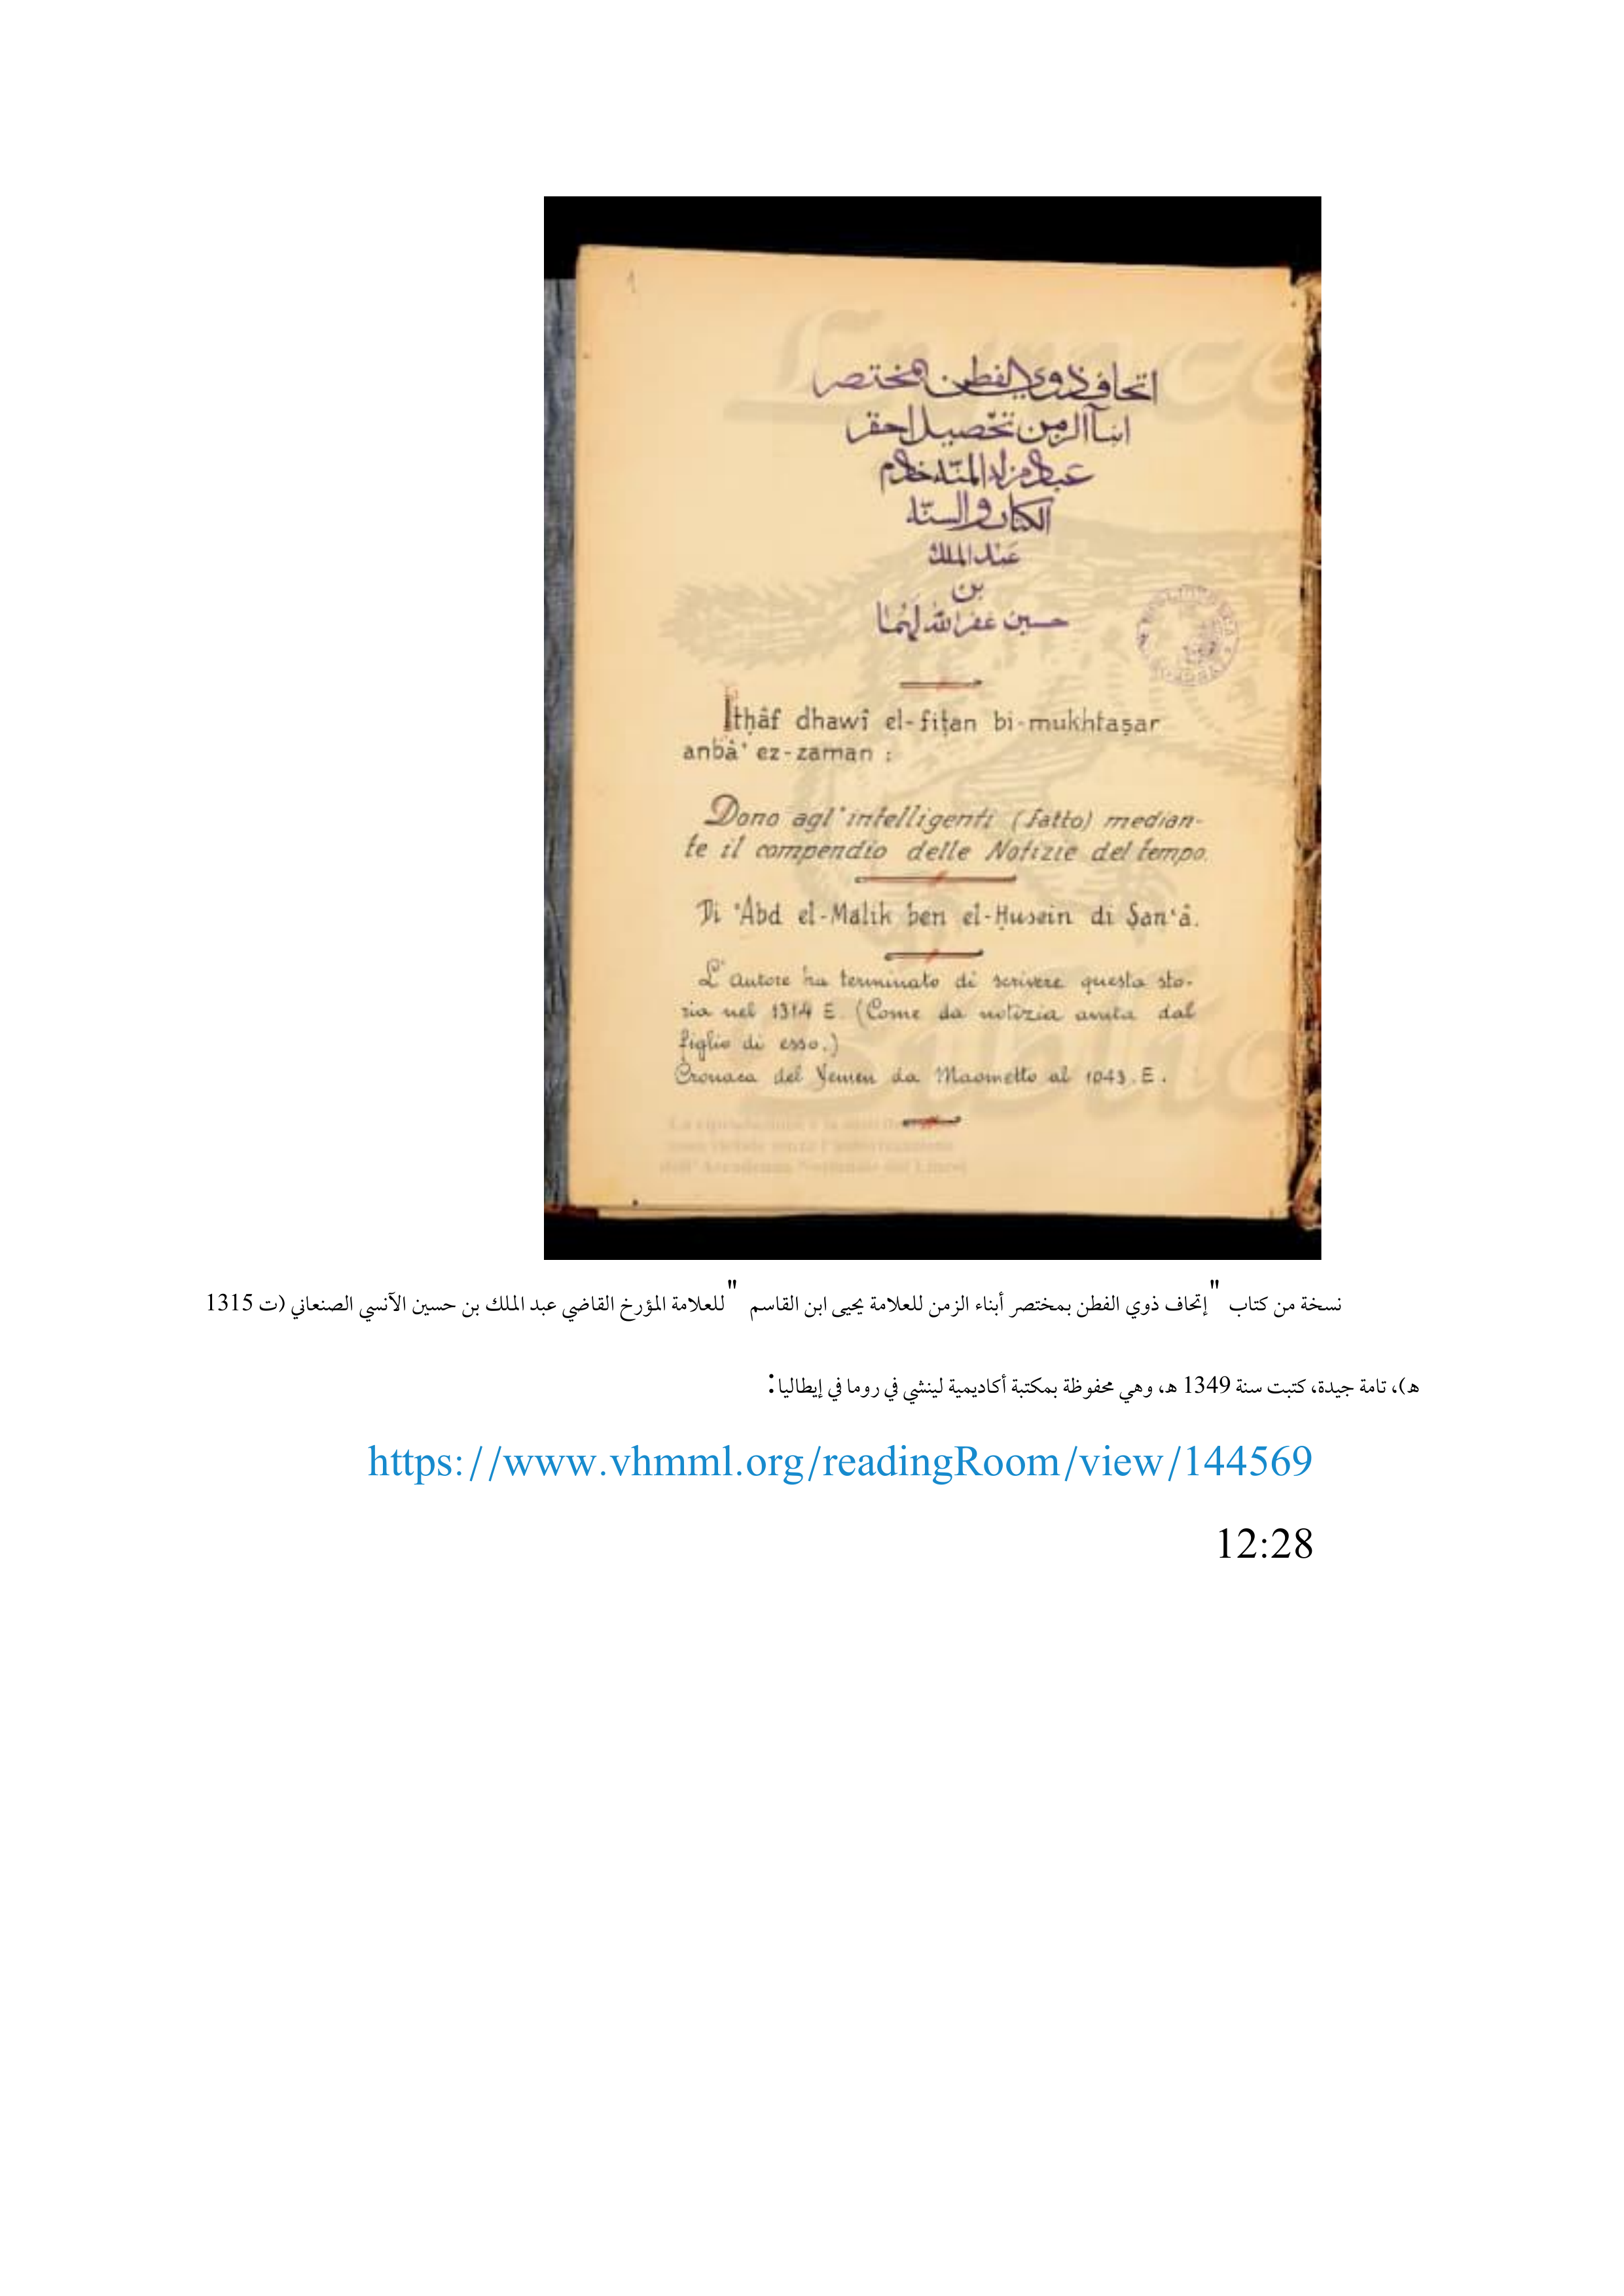 1
اتحاف ذوي الفطن بمختصر
انبآ الزمن تحصيل احقر
عباد من له المنّه خادم
الكتاب والسنّه
عبد الملك
بن
حسين غفر الله لهما
Ithâf dhawî el-fiṭan bi-mukhtaṣar
anbâ' ez-zaman :
Dono agl'intelligenti (fatto) median-
te il compendio delle Notizie del tempo.
Di 'Abd el-Malik ben el-Ḥusein di Ṣan'â.
L'autore ha terminato di scrivere questa sto-
ria nel 1314 E. (Come da notizia avuta dal
figlio di esso.)
Cronaca del Yemen da Maometto al 1043. E.
نسخة من كتاب "إتحاف ذوي الفطن بمختصر أبناء الزمن للعلامة يحيى ابن القاسم " للعلامة المؤرخ القاضي عبد الملك بن حسين الآنسي الصنعاني (ت 1315
هـ)، تامة جيدة، كتبت سنة 1349 هـ، وهي محفوظة بمكتبة أكاديمية لينشي في روما في إيطاليا:
https://www.vhmml.org/readingRoom/view/144569
12:28